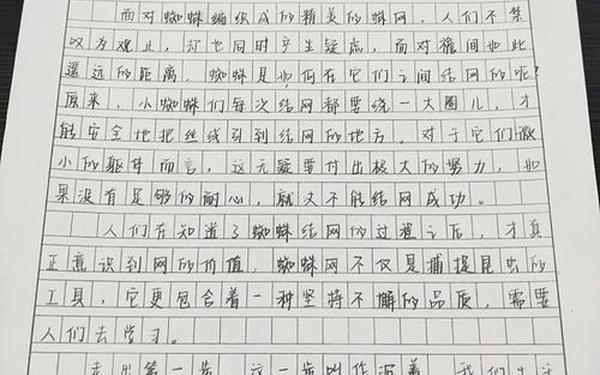 面对蜘蛛编织成的精美的蛛网，人们不禁
叹为观止，却也同时产生疑虑，面对檐间如此
遥远的距离，蜘蛛是如何在它们之间结网的呢？
原来，小蜘蛛们每次结网都要绕一大圈儿，才
能安全地把丝线引到结网的地方。对于它们微
小的躯体而言，这无疑要付出极大的努力，如
果没有足够的耐心，就丈不能结网成功。
人们在知道了蜘蛛结网的过程之后，才真
正意识到网的价值，蜘蛛网不仅是捕捉昆虫的
工具，它更包含着一种坚持不懈的品质，需要
人们去学习。
走出第一步，这一步叫作沉着，我们生活